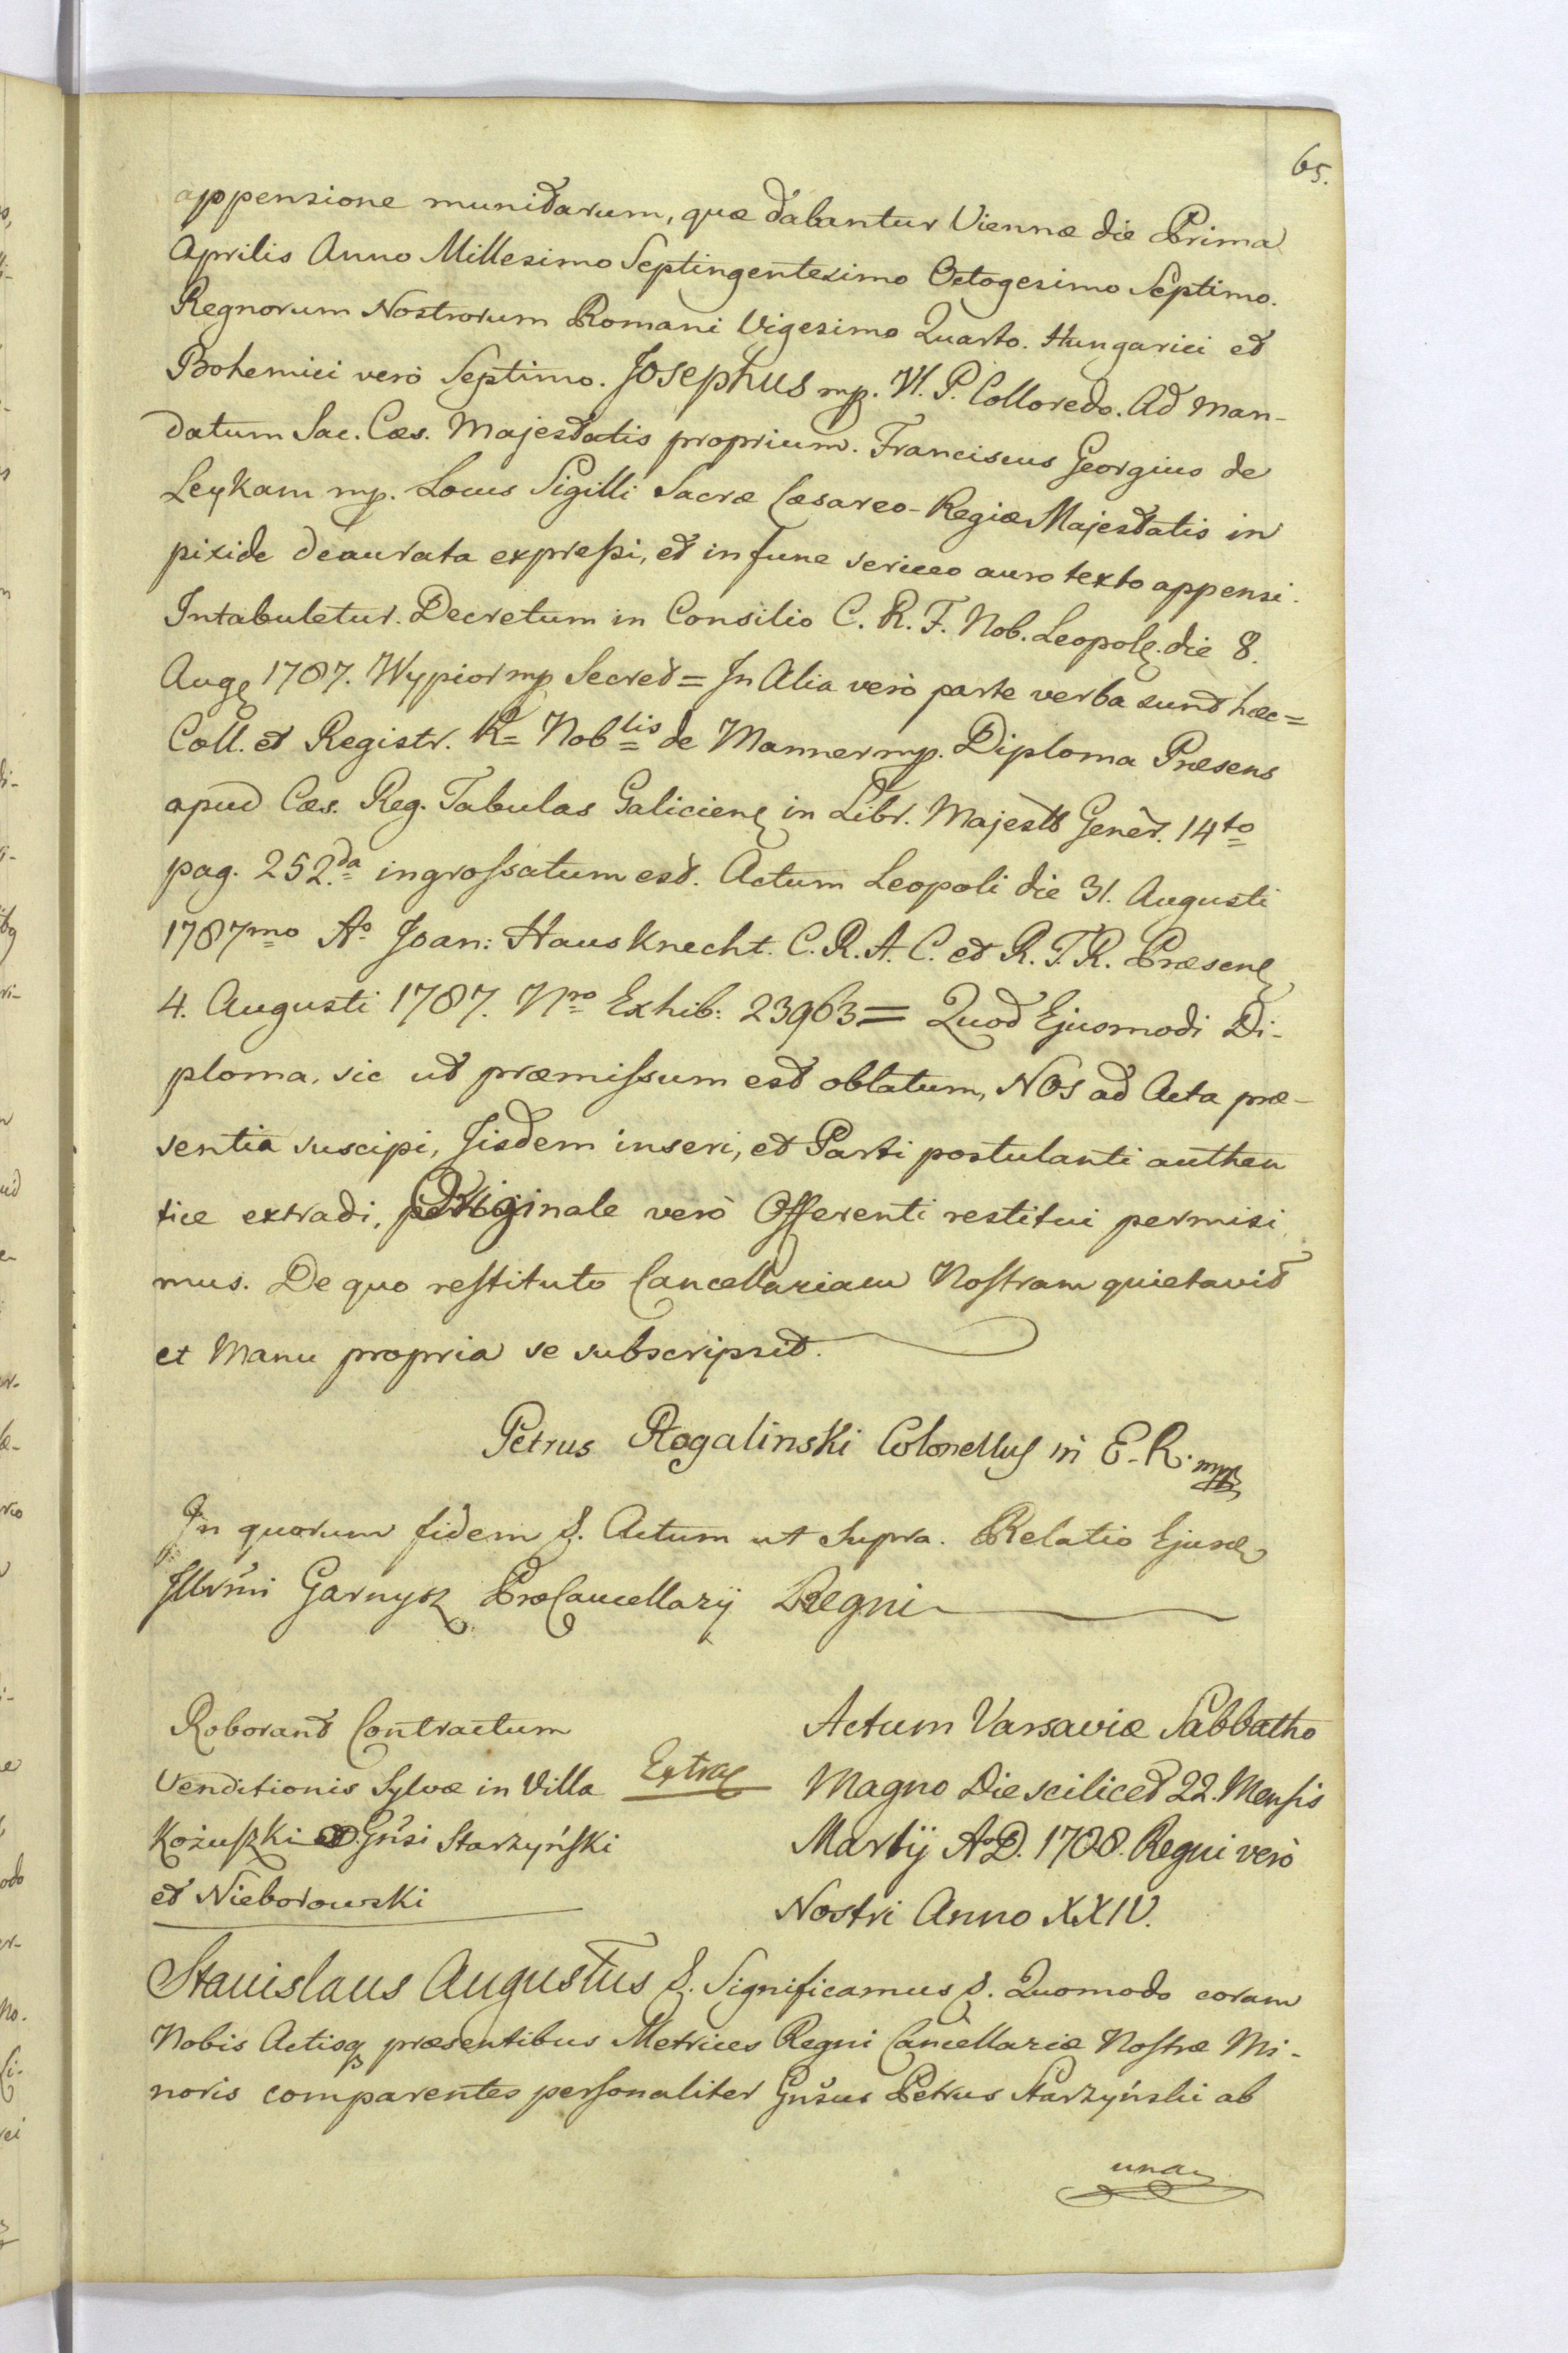 65.
appensione munitarum, quæ dabantur Viennæ die Prima
Aprilis Anno Millesimo Septingentesimo Octogesimo Septimo.
Regnorum Nostrorum Romani Vigesimo Quarto. Hungarici et
Bohemici verò Septimo. Josephus mp. Vt. P. Colloredo. Ad Man-
datum Sac. Cæs. Majestatis proprium. Franciscus Georgius de
Leykam mp. Locus Sigilli Sacræ Cæsareo-Regiæ Majestatis in
pixide deaurata expressi, et in fune sericeo auro texto appensi.
Intabuletur. Decretum in Consilio C. R. F. Nob. Leopol. die 8.
Aug 1787. Wypior mp Secret = In Alia verò parte verba sunt hæc =
Coll. et Registr. R= Nob lis de Manner mp. Diploma Præsens
apud Cæs. Reg. Tabulas Galicien in Libr. Majest Gener. 14to
pag. 252.da ingrossatum est. Actum Leopoli die 31. Augusti
1787mo Ao Joan: Hausknecht. C. R. A. C. et R. T. R. Præsen
4. Augusti 1787. Nro Exhib: 23963 = Quod Ejusmodi Di-
ploma, sic ut præmissum est oblatum, Nos ad Acta præ-
sentia suscipi, Jisdem inseri, et Parti postulanti authen
tice extradi, Originale verò Offerenti restitui permisi
mus. De quo restituto Cancellariam Nostram quietavit
et Manu propria se subscripsit.
Petrus Rogalinski Colonellus in E. R. mp
In quorum fidem &. Actum ut supra. Relatio Ejusd
Jllrsmi Garnysz ProCancellarij Regni
Roborant Contractum
Venditionis Sylvæ in Villa
Kożuszki Gnsi Starzyński
et Nieborowski
Extrad
Actum Varsaviæ Sabbatho
Magno Die scilicet 22. Mensis
Martij A.D. 1788. Regni verò
Nostri Anno XXIV.
Stanislaus Augustus &. Significamus &. Quomodo coram
Nobis Actisq præsentibus Metrices Regni Cancellariæ Nostræ Mi-
noris comparentes personaliter Gnsus Petrus Starzyński ab
una